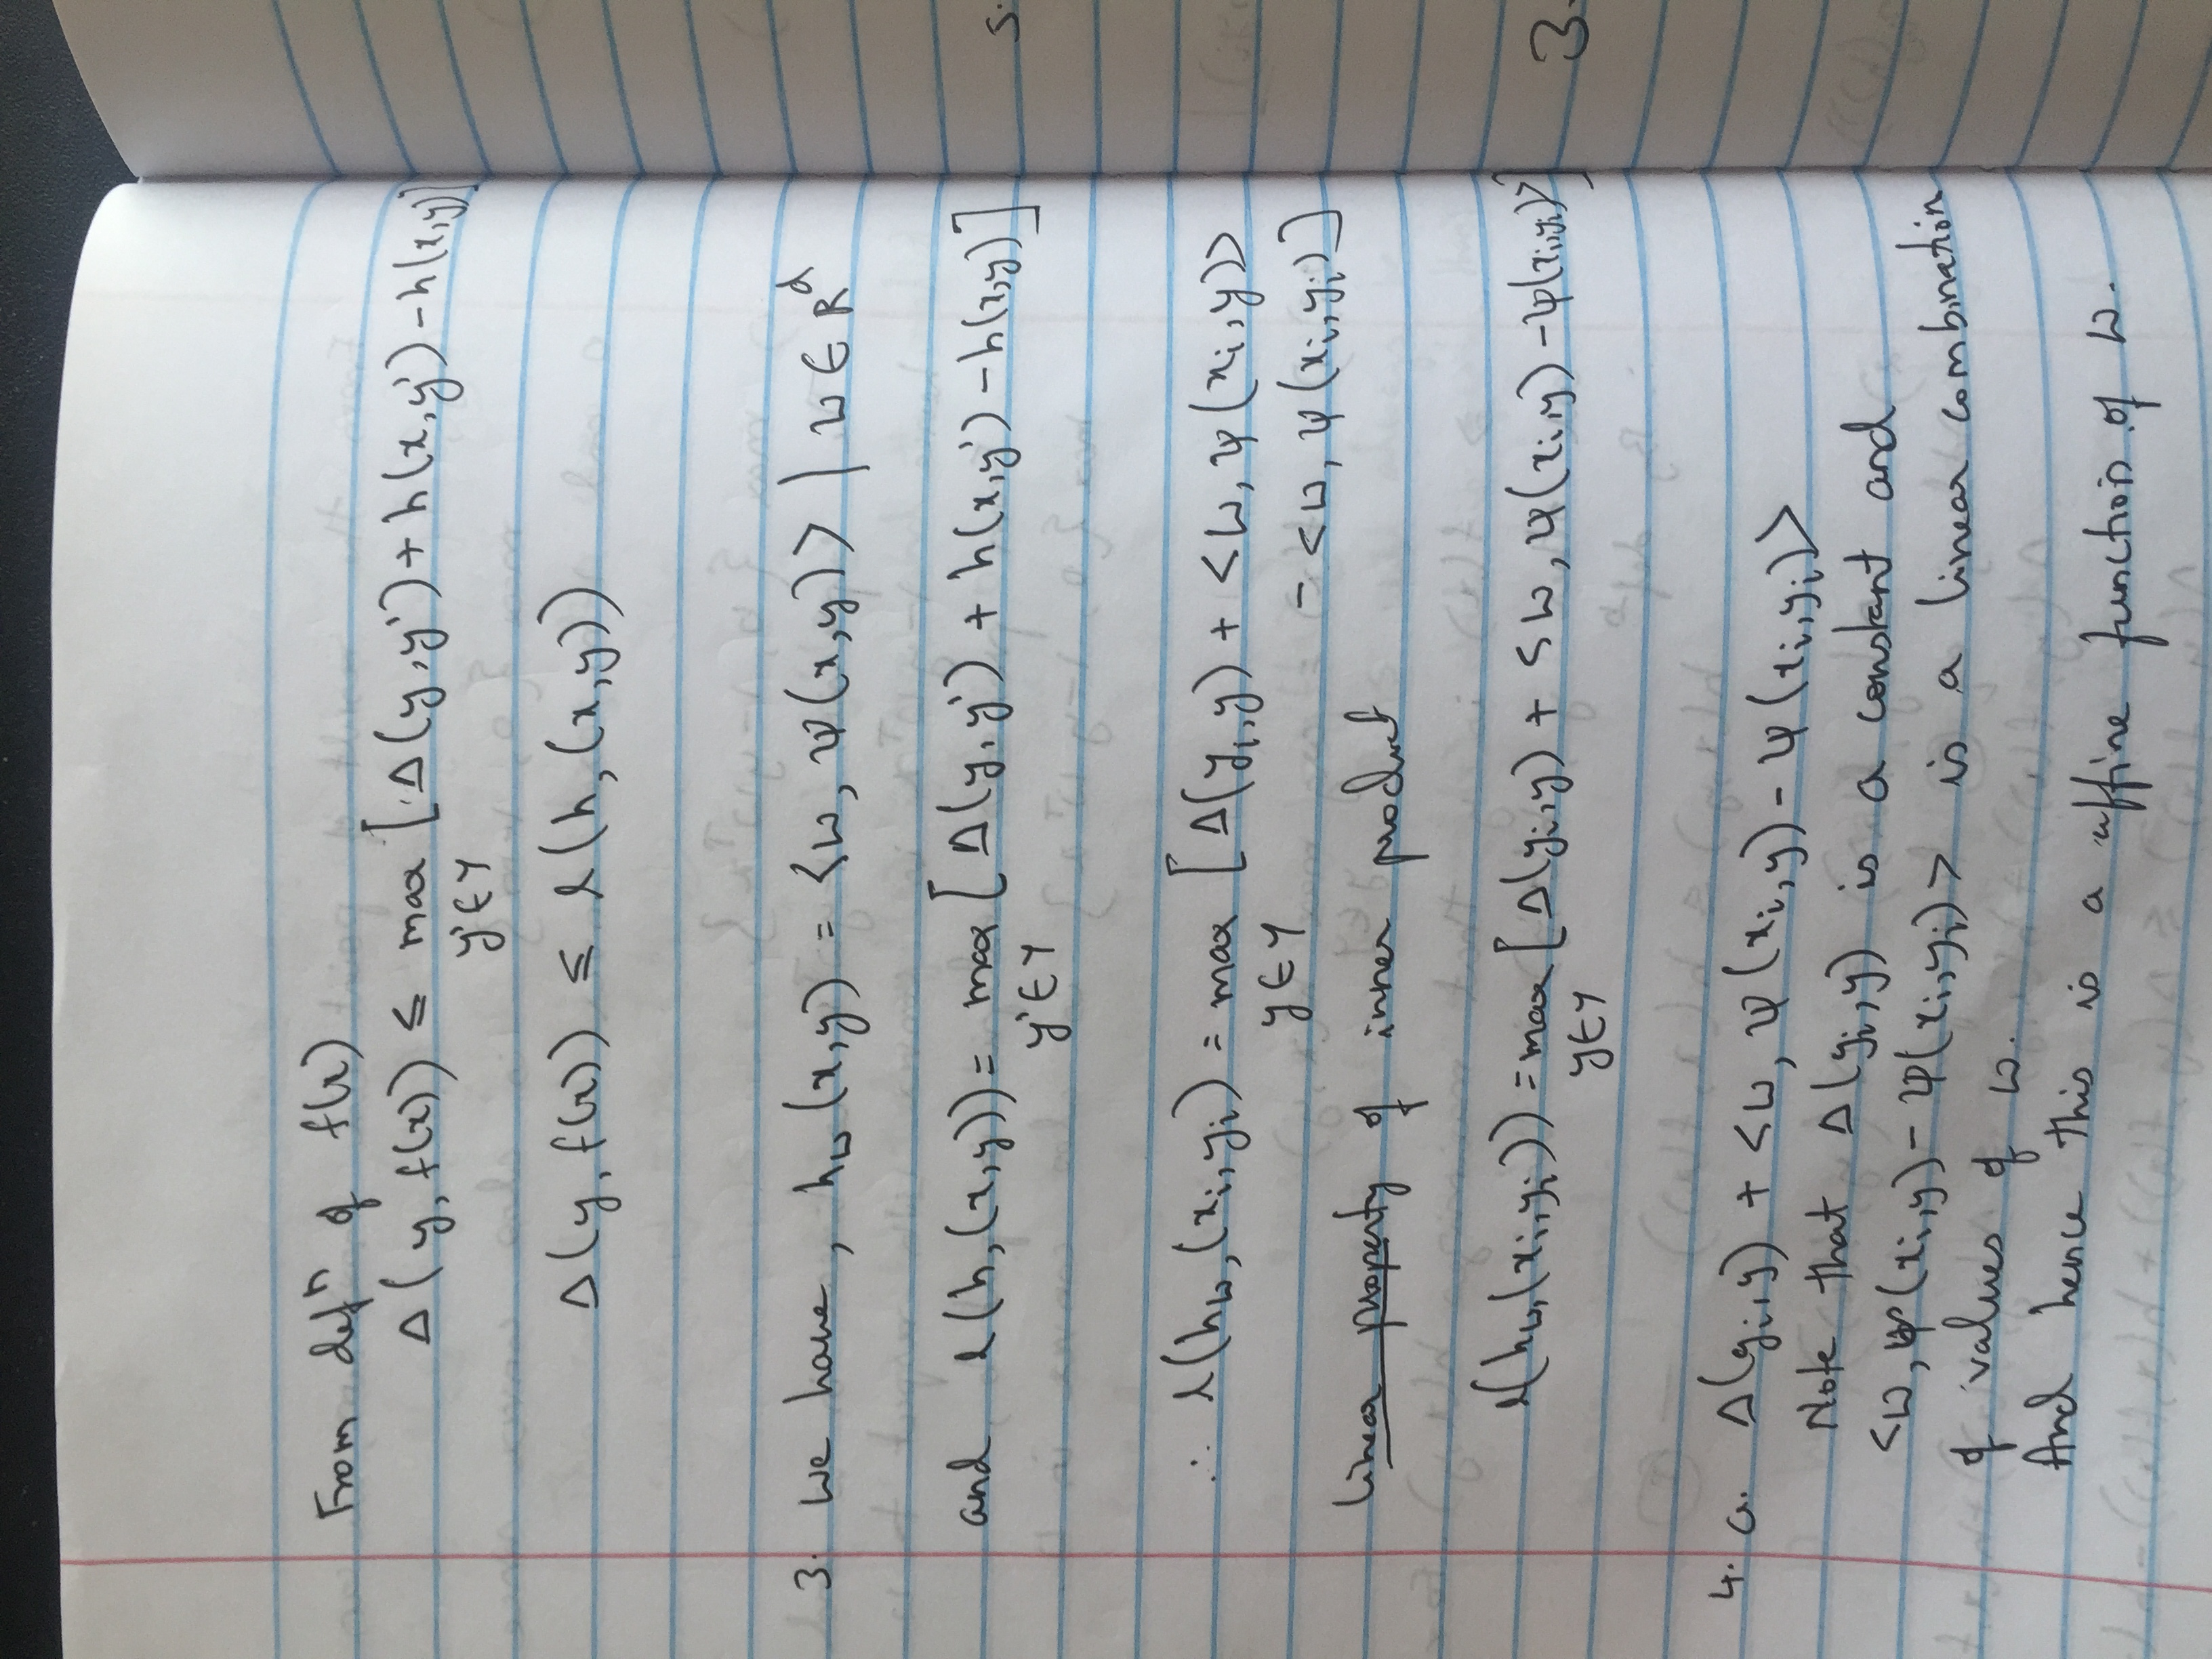 From defⁿ of f(x)
Δ(y, f(x)) ≤ max [Δ(y,y') + h(x,y') - h(x,y)]
y'∈Y
Δ(y, f(x)) ≤ l(h,(x,y))
3. We have, h_w(x,y) = <w, ψ(x,y)> | w ∈ R^d
and l(h,(x,y)) = max [Δ(y,y') + h(x,y') - h(x,y)]
y'∈Y
∴ l(h_w,(x_i,y_i) = max [Δ(y_i,y) + <w, ψ(x_i,y)>
y∈Y - <w, ψ(x_i,y_i)]
linear property of inner product
l(h_w,(x_i,y_i)) = max [Δ(y_i,y) + <w, ψ(x_i,y) - ψ(x_i,y_i)>]
y∈Y
4. a. Δ(y_i,y) + <w, ψ(x_i,y) - ψ(x_i,y_i)>
Note that Δ(y_i,y) is a constant and
<w, ψ(x_i,y) - ψ(x_i,y_i)> is a linear combination
of values of w.
And hence this is a affine function of w.
3.